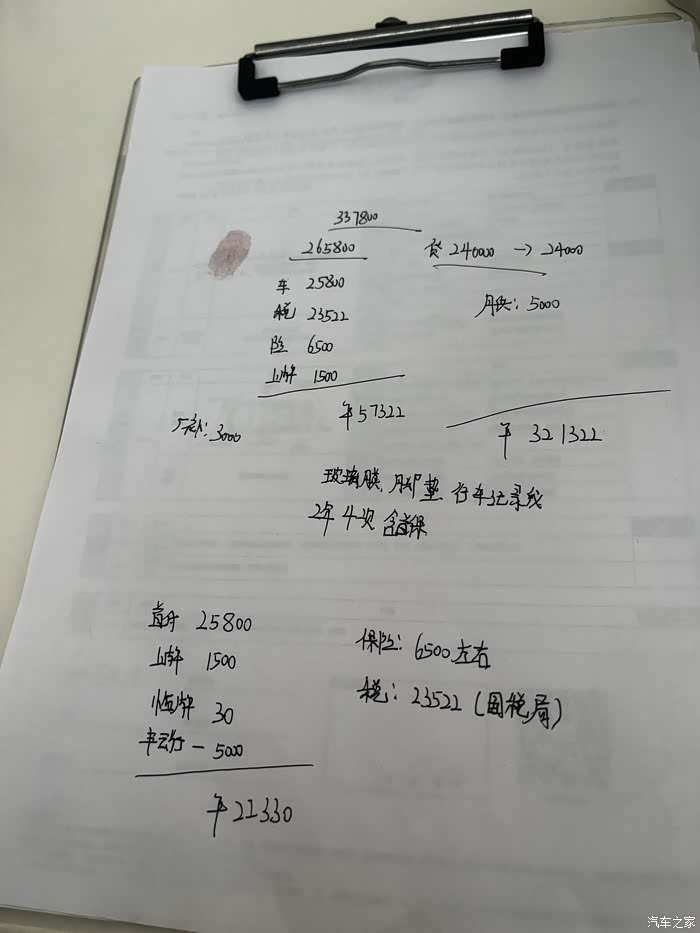 337800
265800
贷 240000 → 24000
车 25800
月供: 5000
税 23522
险 6500
上牌 1500
57322
3000
321322
玻璃膜. 脚垫. 行车记录仪
2年 4次 含首保
首付 25800
上牌 1500
30
-5000
22330
保险: 6500左右
税: 23522 (国税局)
汽车之家